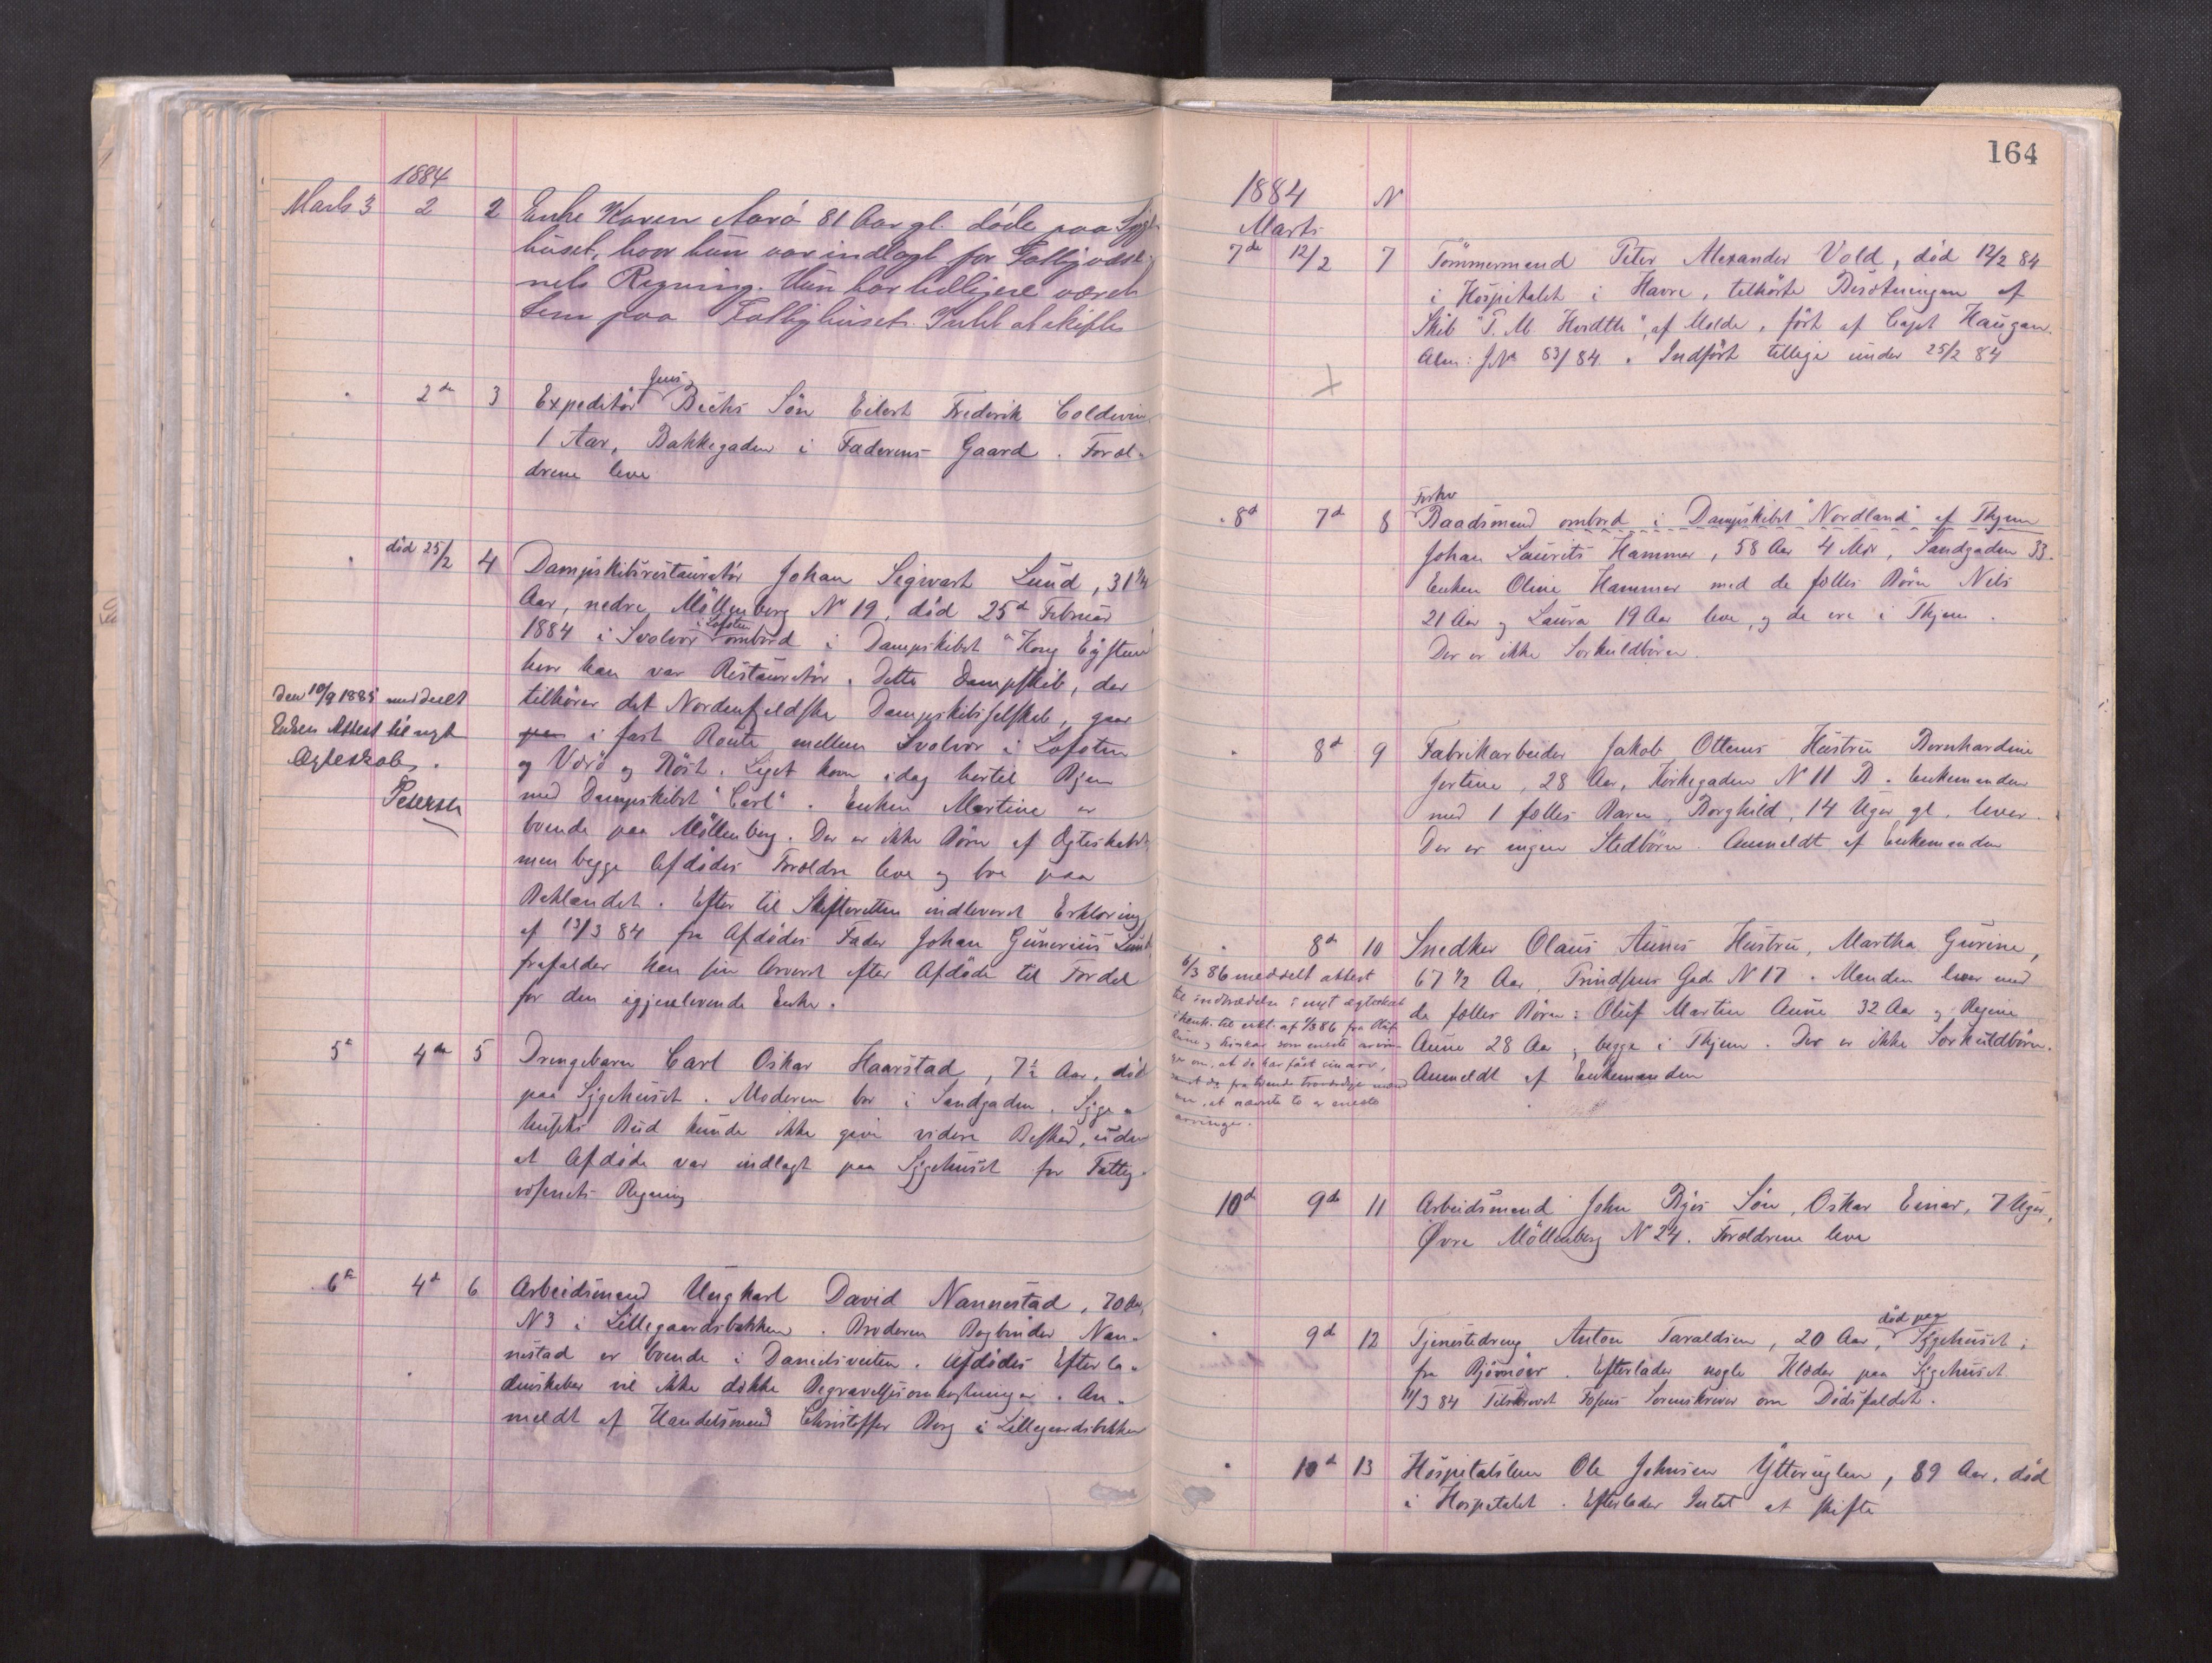 1884
Marts 3 2 2 Enke Karen Aarö 81 Aar gl. døde paa Syge-
huset, hvor hun var indlagt for Fattigvæse-
nets Regning. Hun har tidligere været
Lem paa Fattighuset. Intet at skifte
2den 3 Expeditör Jens Bechs Sön Eilert Frederik Coldevin
1 Aar, Bakkegaden i Faderens Gaard. Foræl-
drene leve
död 25/2 4 Dampskibsrestauratör Johan Sigwart Lund, 31 1/4
Aar, nedre Möllenberg N 19, död 25de Februar
1884 i Svolvær i Lofoten ombord i Dampskibet "Kong Eÿstein"
hvor han var Restauratör. Dette Dampskib, der
tilhörer det Nordenfjeldske Dampskibsselskab, gaar
i fast Route mellem Svolvær i Lofoten
og Værö og Röst. Liget kom idag hertil Byen
med Dampskibet "Carl". Enken Martine er
boende paa Möllenberg. Der er ikke Börn af Ægteskabet,
men begge Afdödes Forældre leve og bo paa
Baklandet. Efter til Skifteretten indleveret Erklæring
af 13/3 84 fra Afdödes Fader Johan Gunerius Lund
frafalder han sin Arveret efter Afdöde til Fordel
for den igjenlevende Enke.
Den 10/9 1885 meddeelt
Enken Attest til nyt
Ægteskab.
Petersen
5te 4de 5 Drengebarn Carl Oskar Haarstad, 7½ Aar, död
paa Sygehuset. Moderen bor i Sandgaden. Syge-
husets Bud kunde ikke give videre Besked, uden
at Afdöde var indlagt paa Sygehuset for Fattig-
væsenets Regning
6te 4de 6 Arbeidsmand Ungkarl David Nannestad, 70 Aar,
N3 i Lillegaardsbakken. Broderen Bogbinder Nan-
nestad er boende i Danielsveiten. Afdödes Efterla-
denskaber vil ikke dække Begravelsesomkostninger. An-
meldt af Handelsmand Christoffer Berg i Lillegaardsbakken
164
1884 N
Marts
7de 12/2 7 Tömmermand Peter Alexander Vold, död 12/2 84
i Hospitalet i Havre, tilhörte Besætningen af
Skib "P. M. af Molde, fört af Capt Haugan.
Alm: JN 53/84. Indfört tillige under 25/2 84
8de 7de 8 Forhv Baadsmand ombord i Dampskibet "Nordland" af Thjem
Johan Laurits Hammer, 58 Aar 4 Mdr, Sandgaden 33.
Enken Oline Hammer med de fælles Börn Nils
21 Aar og Laura 19 Aar leve, og de ere i Thjem.
Der er ikke Særkuldbörn.
8de 9 Fabrikarbeider Jakob Ottems Hustru Bernhardine
Jertine, 28 Aar, Kirkegaden N 11 B. Enkemanden
med 1 fælles Barn, Borghild, 14 Uger gl. lever.
Der er ingen Stedbörn. Anmeldt af Enkemanden
8de 10 Snedker Olaus Aunes Hustru, Martha Gurine,
67 ½ Aar, Frindsens Gade N 17. Manden lever med
de fælles Börn: Oluf Martin Aune 32 Aar og Regine
Aune 28 Aar, begge i Thjem. Der er ikke Særkuldbörn.
Anmeldt af Enkemanden
6/3 86 meddelt attest
til indtrædelse i nyt ægteskab
i henh. til erkl. af 1/3 86 fra Oluf
Aune som eneste arvin-
ger om, at de har fået sin arv,
samt do fra tvende troværdige mænd
om, at nævnte to er eneste
arvinger.
10de 9de 11 Arbeidsmand John Byes Sön, Oskar Einar, 7 Uger,
Övre Möllenberg N 24. Forældrene leve
9de 12 Tjenestedreng Anton Taraldsen, 20 Aar, död paa Sygehuset;
fra Bjørnör. Efterlader nogle Klæder paa Sygehuset.
11/3 84 Tilskrevet Fosens Sorenskriver om Dödsfaldet.
10de 13 Hospitalslem Ole Johnsen Ytteruglen, 89 Aar, död
i Hospitalet. Efterlader Intet at skifte